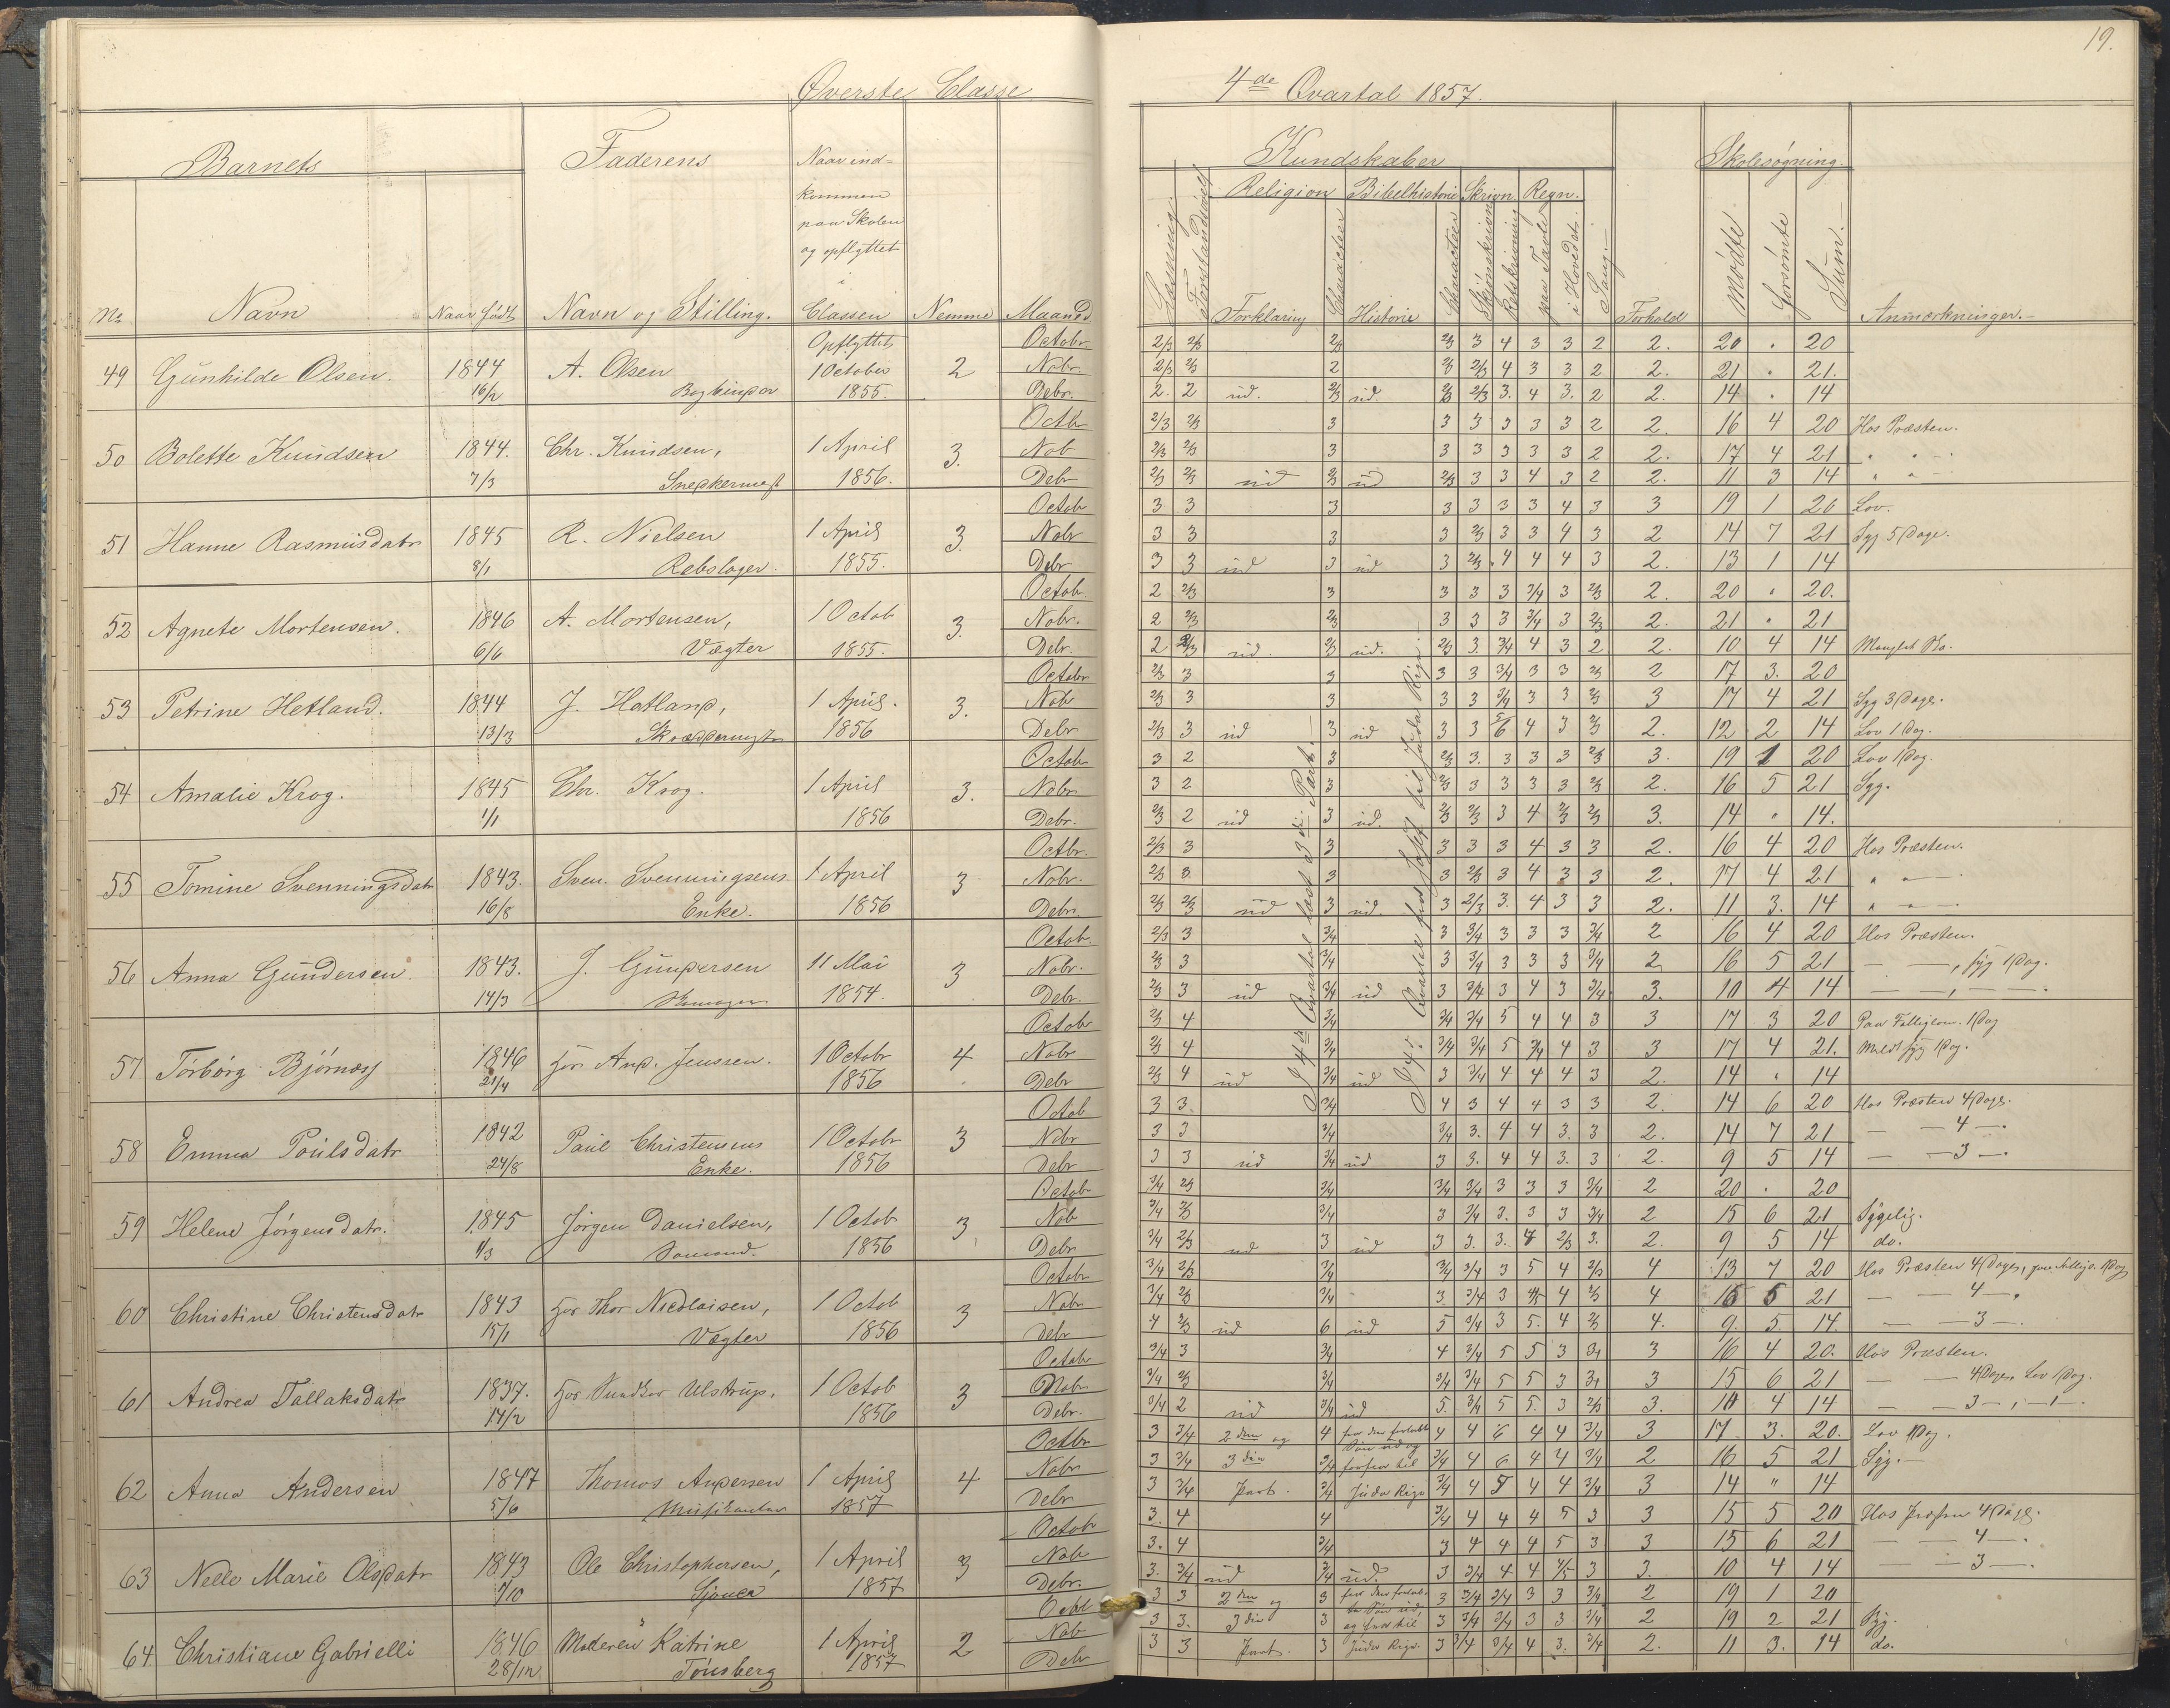 Øverste Classe
Barnets
Faderens
Naar ind-
kommen
paa Skolen
og opflyttet
i
Classen
No
Navn
Naar født
Navn og Stilling.
Nemme
Maaned
49 Gunhilde Olsen. 1844 A. Olsen Opflyttet 1 October 2 Octobr
16/2 Bogbinder 1855. Nobr.
Debr.
50 Bolette Knudsen 1844. Chr. Knudsen, 1 April 3. Octbr
7/3 Snedkermest 1856. Nob
Debr
51 Hanne Rasmusdatr 1845 R. Nielsen 1 April 3. Octob
8/1 Rebslager. 1855. Nobr
Debr
52 Agnete Mortensen. 1846 A. Mortensen, 1 Octob 3. Octob.
6/6 Vægter 1855. Nobr.
Debr.
53 Petrine Hetland. 1844 J. Hetland, 1 April. 3. Octobr
13/3 Skræddermgtr 1856 Nobr
Debr
54 Amalie Krog. 1845 Chr. Krog. 1 April 3. Octob
1/1 1856 Nobr
Debr.
55 Tomine Svenningsdatr 1843. Sven. Svenningsens 1 April 3 Octbr.
16/8 Enke. 1856 Nobr.
Debr.
56 Anna Gundersen. 1843. J. Gundersen 11 Mai 3 Octob.
14/3 1854. Nobr.
Debr.
57 Torborg Bjørnæs 1846 hos And. Jenssen. 1 Octobr 4 Octob
21/4 1856 Nobr
Debr
58 Emma Poulsdatr 1842 Paul Christensens 1 Octobr 3 Octob
24/8 Enke. 1856 Nobr
Debr
59 Helene Jörgensdatr. 1845 Jörgen Danielsen, 1 Octob 3 Octob
1/3 Sømand. 1856 Nob
Debr
60 Christine Christensdatr 1843 hos Thor Nicolaisen, 1 Octob 3 Octobr
15/1 Vægter 1856 Nobr
Debr
61 Andrea Tallaksdatr 1837. hos Ulstrup. 1 Octob 3 Octob
14/2 1856 Nobr
Debr.
62 Anna Andersen 1847 Thomas Andersen 1 April 4 Octbr
5/6 Musikanter 1857 Nobr
Debr
63 Nelle Marie Olsdatr 1843 Ole Christophersen, 1 April 3 Octob
1/10 1857 Nob
Debr.
64 Christiane Gabrielli 1846 Moderen Katrine 1 April 2 Octbr
28/12 Tönsberg 1857 Nob
Debr
19.
4de Qvartal 1857.
Kundskaber
Skolesøgning.
Religion Bibelhistorie Skrivn. Regn.
Læsning.
Forstandsøvelse
Forklaring
Character
Historie
Character
Skjönskrivning
Retskrivning
paa Tavle
i Hovedet.
Sang.
Forhold
Mødte
Forsømte
Sum.
Anmærkninger.
2/3 2/3 2/3 2/3 3 4 3 3 2 2. 20 . 20
2/3 2/3 2 2/3 2/3 4 3 3 2 2. 21 . 21.
2. 2 ud. 2/3 ud. 2/3 2/3 3. 4 3. 2 2. 14 . 14
2/3 2/3 3 3 3 3 3 3 2 2. 16 4 20 Hos Præsten.
2/3 2/3 3 3 3 3 3 3 2 2. 17 4 21 " "
2/3 2/3 ud 2/3 ud 2/3 3 3 4 3 2 2. 11 3 14 " "
3 3 3 3 3 3 3 4 3 3 19 1 20 Lov.
3 3 3 3 2/3 3 3 4 3 2 14 7 21 Syg 5 Dage.
3 3 ud 3 ud 3 2/3 4 4 4 3 2. 13 1 14
2 2/3 3 3 3 3 3/4 3 2/3 2. 20 " 20.
2 2/3 2/3 3 3 3 3/4 3 2/3 2. 21 . 21
2 2/3 ud. 2/3 ud. 2/3 3 3/4 4 3 2 2. 10 4 14
2/3 3 3 3 3 3/4 3 3 2/3 2 17 3. 20
2/3 3 3 3 3 3/4 3 3 2/3 3 17 4 21 Syg 3 Dage.
2/3 3 ud 3 ud 3 3 5/6 4 3 2/3 2. 12 2 14 Lov 1 Dag.
3 2 3 2/3 3. 3 3 3 2/3 3. 19 1 20 Lov 1 Dag.
3 2 3 2/3 3 3 3 3 2/3 2. 16 5 21 Syg.
2/3 2 ud 3 ud. 2/3 2/3 3 4 2/3 2/3 3. 14 " 14.
2/3 3 3 3 3 3 4 3 3 2. 16 4 20 Hos Præsten.
2/3 3 3 3 2/3 3 4 3 3 2. 17 4 21 " —
2/3 2/3 ud 3 ud. 3 2/3 3. 4 3 3 2. 11 3. 14 " —
2/3 3 3/4 3 3/4 3 3 3 3/4 2 16 4 20 Hos Præsten.
2/3 3 3/4 3 3/4 3 3 3 3/4 2 16 5 21 — —, syg 1 Dag.
2/3 3 ud 3/4 ud 3 3/4 3 4 3 3/4 3. 10 4 14 — —, — —.
2/3 4 3/4 3/4 3/4 5 4 4 3 3 17 3 20 1 Dag
2/3 4 3/4 3/4 3/4 5 3/4 4 3 3 17 4 21. syg 1 Dag.
2/3 4 ud 3/4 ud 3 3/4 4 4 4 3 2. 14 " 14
3 3. 3/4 4 3 4 4 3 3 2. 14 6 20 Hos Præsten 4 Dage.
3 3 3/4 3/4 3. 4 4 3. 3 2. 14 7 21 — — 4 —.
3 3 ud 3/4 ud 3 3. 4 4 3. 3 2. 9 5 14 — — 3 —.
3/4 2/3 3/4 3/4 3/4 3 3 3 3/4 2 20 . 20
3/4 2/3 3/4 3 3/4 3. 3 3 3/4 2 15 6 21 Sygelig.
3/4 2/3 ud 3 ud 3 3. 3. 4 2/3 3. 2. 9 5 14 do.
3/4 2/3 3/4 3/4 3/4 3 5 4 2/3 4 13 7 20 Hos Præsten 4 Dage, 1 Dag
3/4 2/3 3/4 3. 3/4 3 4/5 4 2/3 4 16 5 21 — — 4 —.
4 2/3 ud 6 ud 5 3/4 3 5. 4 2/3 4. 9. 5. 14. — — 3 —.
3/4 3 3/4 4 3/4 5 5 3 3/4 3 16 4 20. Hos Præsten.
3/4 2/3 3/4 3/4 3/4 5 5 3 3/4 3 15 6 21 — — 4 Dage, Lov 1 Dag.
3/4 2 ud 3/4 ud 5. 3/4 5 5. 3 2/3 3. 10 4 14 — — 3 —, — 1 —.
3 3/4 2den og 4 fra den forlorne 4 4 6 4 4 3/4 3 17 3. 20. Lov 1 Dag.
3 3/4 3die 3/4 Sön ud og forfra til 3/4 4 6 4 4 3/4 2 16 5 21 Syg.
3 3/4 Part. 3/4 Juda Rige 3/4 4 5 4 4 3/4 3 14 " 14
3. 4 4 3/4 4 4 4 5 3 3 15 5 20 Hos Præsten 4 Dage.
3. 4 3/4 3 4 4 4 5 3 3 15 6 21 — — 4 —.
3. 3/4 ud 3/4 ud. 3 3/4 4 4 4/5 3 3. 10 4 14 — — 3 —.
3 3 2den og 3 fra den forlor- 3 3/4 3/4 3 3 3/4 2 19 1 20
3 3. 3die 3 ne Sön ud, og fra til 3 3/4 3/4 3 3 3/4 2 19 2 21 Syg.
3 3 Part. 3 Juda Rige. 3 3/4 3/4 4 3. 3/4 2. 11 3. 14 do.
I 4de Qvartal læst 3die Part.
I 4de Qvartal fra Josef til Juda Rige.